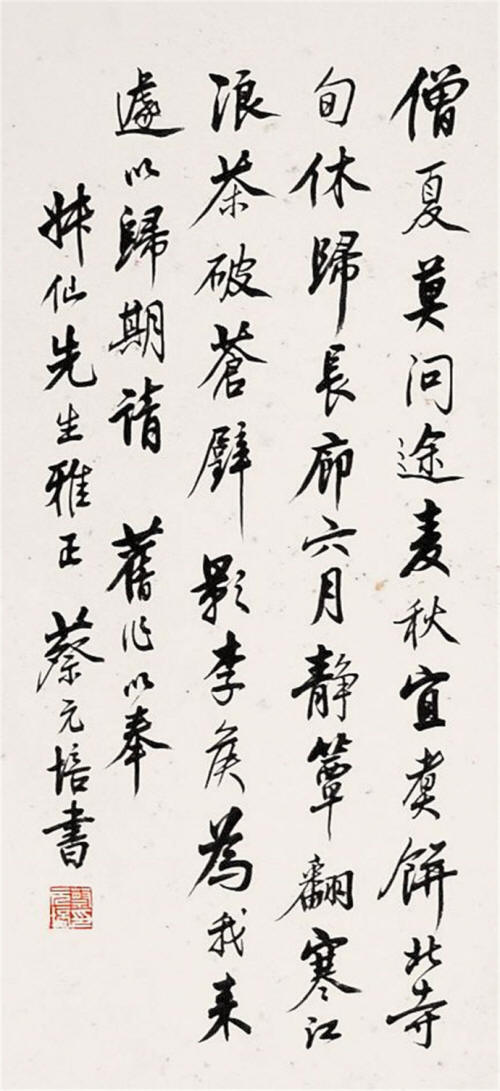 僧夏莫问途麦秋宜煮餅北寺
旬休歸長廊六月静簟翻寒江
浪茶破蒼壁影李侯為我来
遽以歸期請 舊作以奉
仙先生雅正 蔡元培書